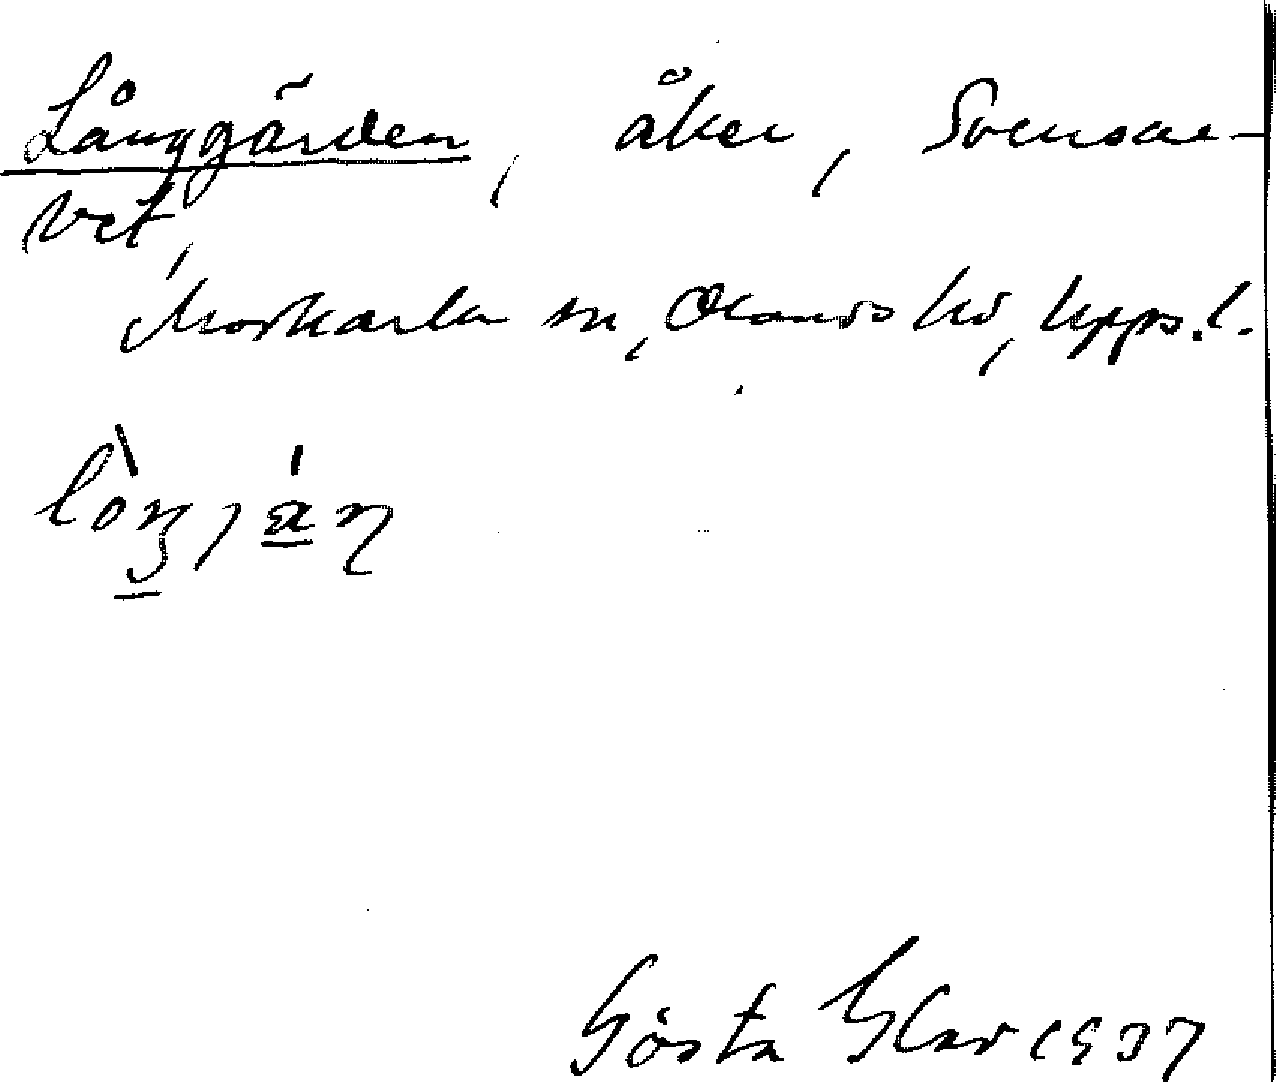 Långgärden, åker, Svensae-
vet,
Morkarla sn, Olands hd, Upps.l.
Gösta 1937